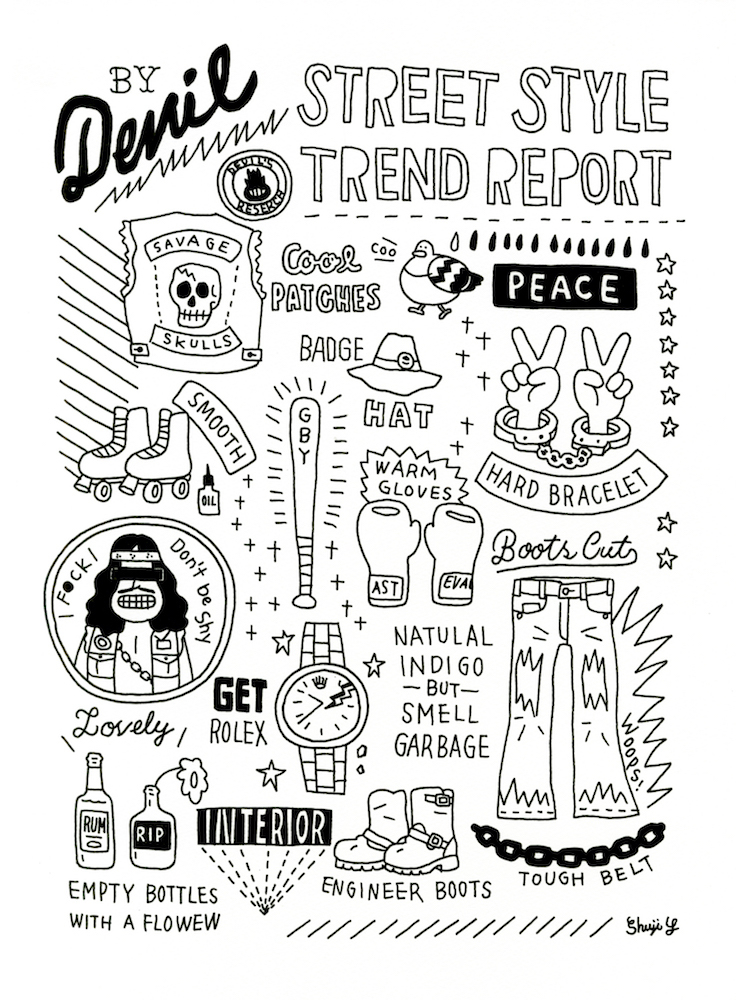 BY
Denil
STREET STYLE
TREND REPORT
DEVIL'S
RESERCH
SAVAGE
SKULLS
Cool
PATCHES
COO
PEACE
BADGE
HAT
SMOOTH
OIL
GBY
WARM
GLOVES
AST
EVAI
HARD BRACELET
Boots Cut
I F●CK!
Don't be shy
Lovely
GET
ROLEX
NATULAL
INDIGO
—BUT—
SMELL
GARBAGE
WOOPS!
RUM
RIP
INTERIOR
EMPTY BOTTLES
WITH A FLOWEW
ENGINEER BOOTS
TOUGH BELT
Shuji Y